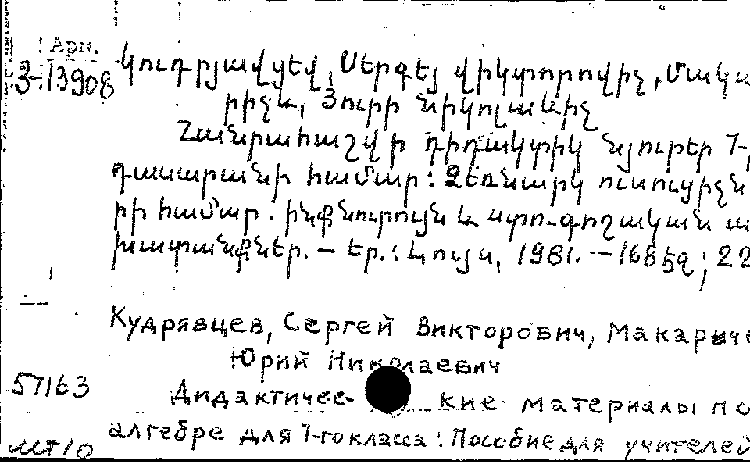 Арм.
Կուդրյավցև, Սերգեյ Վիկտորովիչ, Մակա
3-13908
րիչև, Յուրի Նիկոլաևիչ
Հանրահաշվի դիդակտիկ նյութեր 7-
դասարանի համար: Ձեռնարկ ուսուցիչն
րի համար. ինքնուրույն և ստուգողական ա
խատանքներ. – Եր.: Լույս, 1981. – 168 էջ; 22
Кудрявцев, Сергей Викторович, Макарыче
Юрий Николаевич
57163
Дидактичес- кие материалы по
алгебре для 7-го класса: Пособие для учителей